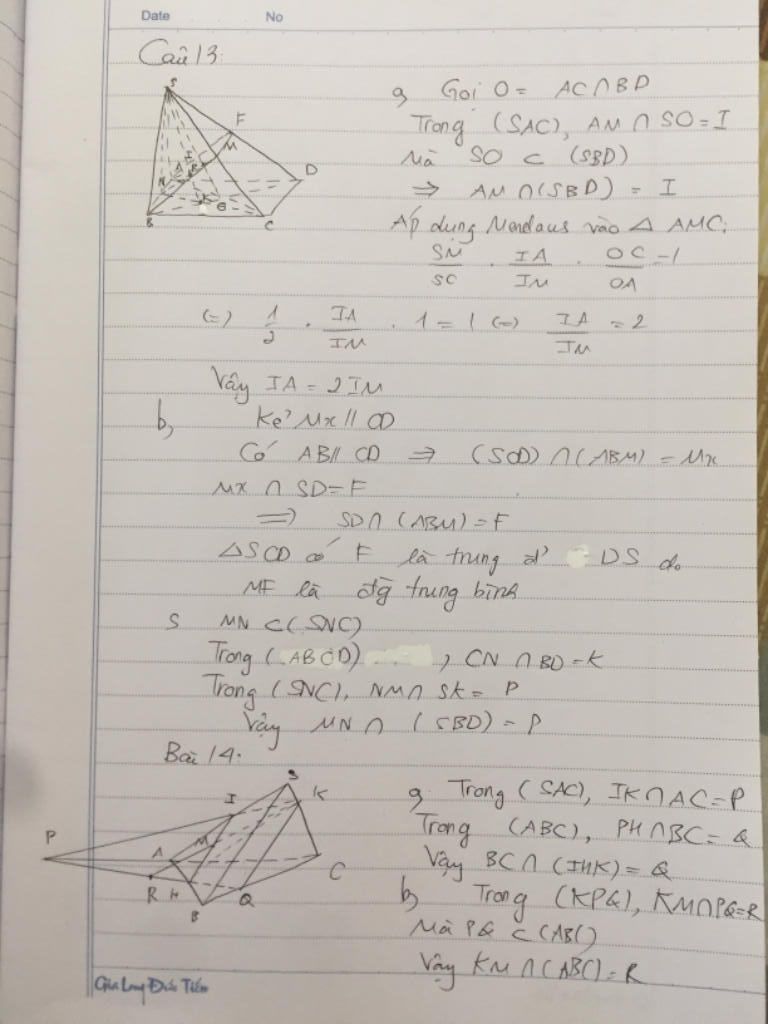 Date No
Câu 13:
S
F
M
D
I
A
N
K
B
C
a, Gọi O = AC ∩ BD
Trong (SAC), AM ∩ SO = I
Mà SO ⊂ (SBD)
⇒ AM ∩ (SBD) = I
Áp dụng Menelaus vào △ AMC:
SM/SC . IA/IM . OC/OA = 1
(=) 1/2 . IA/IM . 1 = 1 (=) IA/IM = 2
Vậy IA = 2IM
b, Kẻ Mx // CD
Có AB // CD ⇒ (SCD) ∩ (ABM) = Mx
Mx ∩ SD = F
⇒ SD ∩ (ABM) = F
△SCD có F là trung đ' DS do
MF là đg trung bình
S MN ⊂ (SNC)
Trong (ABCD), CN ∩ BD = K
Trong (SNC), NM ∩ SK = P
Vậy MN ∩ (SBD) = P
Bài 14:
S
K
I
M
P
A
C
R
H
B
Q
a, Trong (SAC), IK ∩ AC = P
Trong (ABC), PH ∩ BC = Q
Vậy BC ∩ (IHK) = Q
b, Trong (KPQ), KM ∩ PQ = R
Mà PQ ⊂ (ABC)
Vậy KM ∩ (ABC) = R
Gia Long Đức Tiến